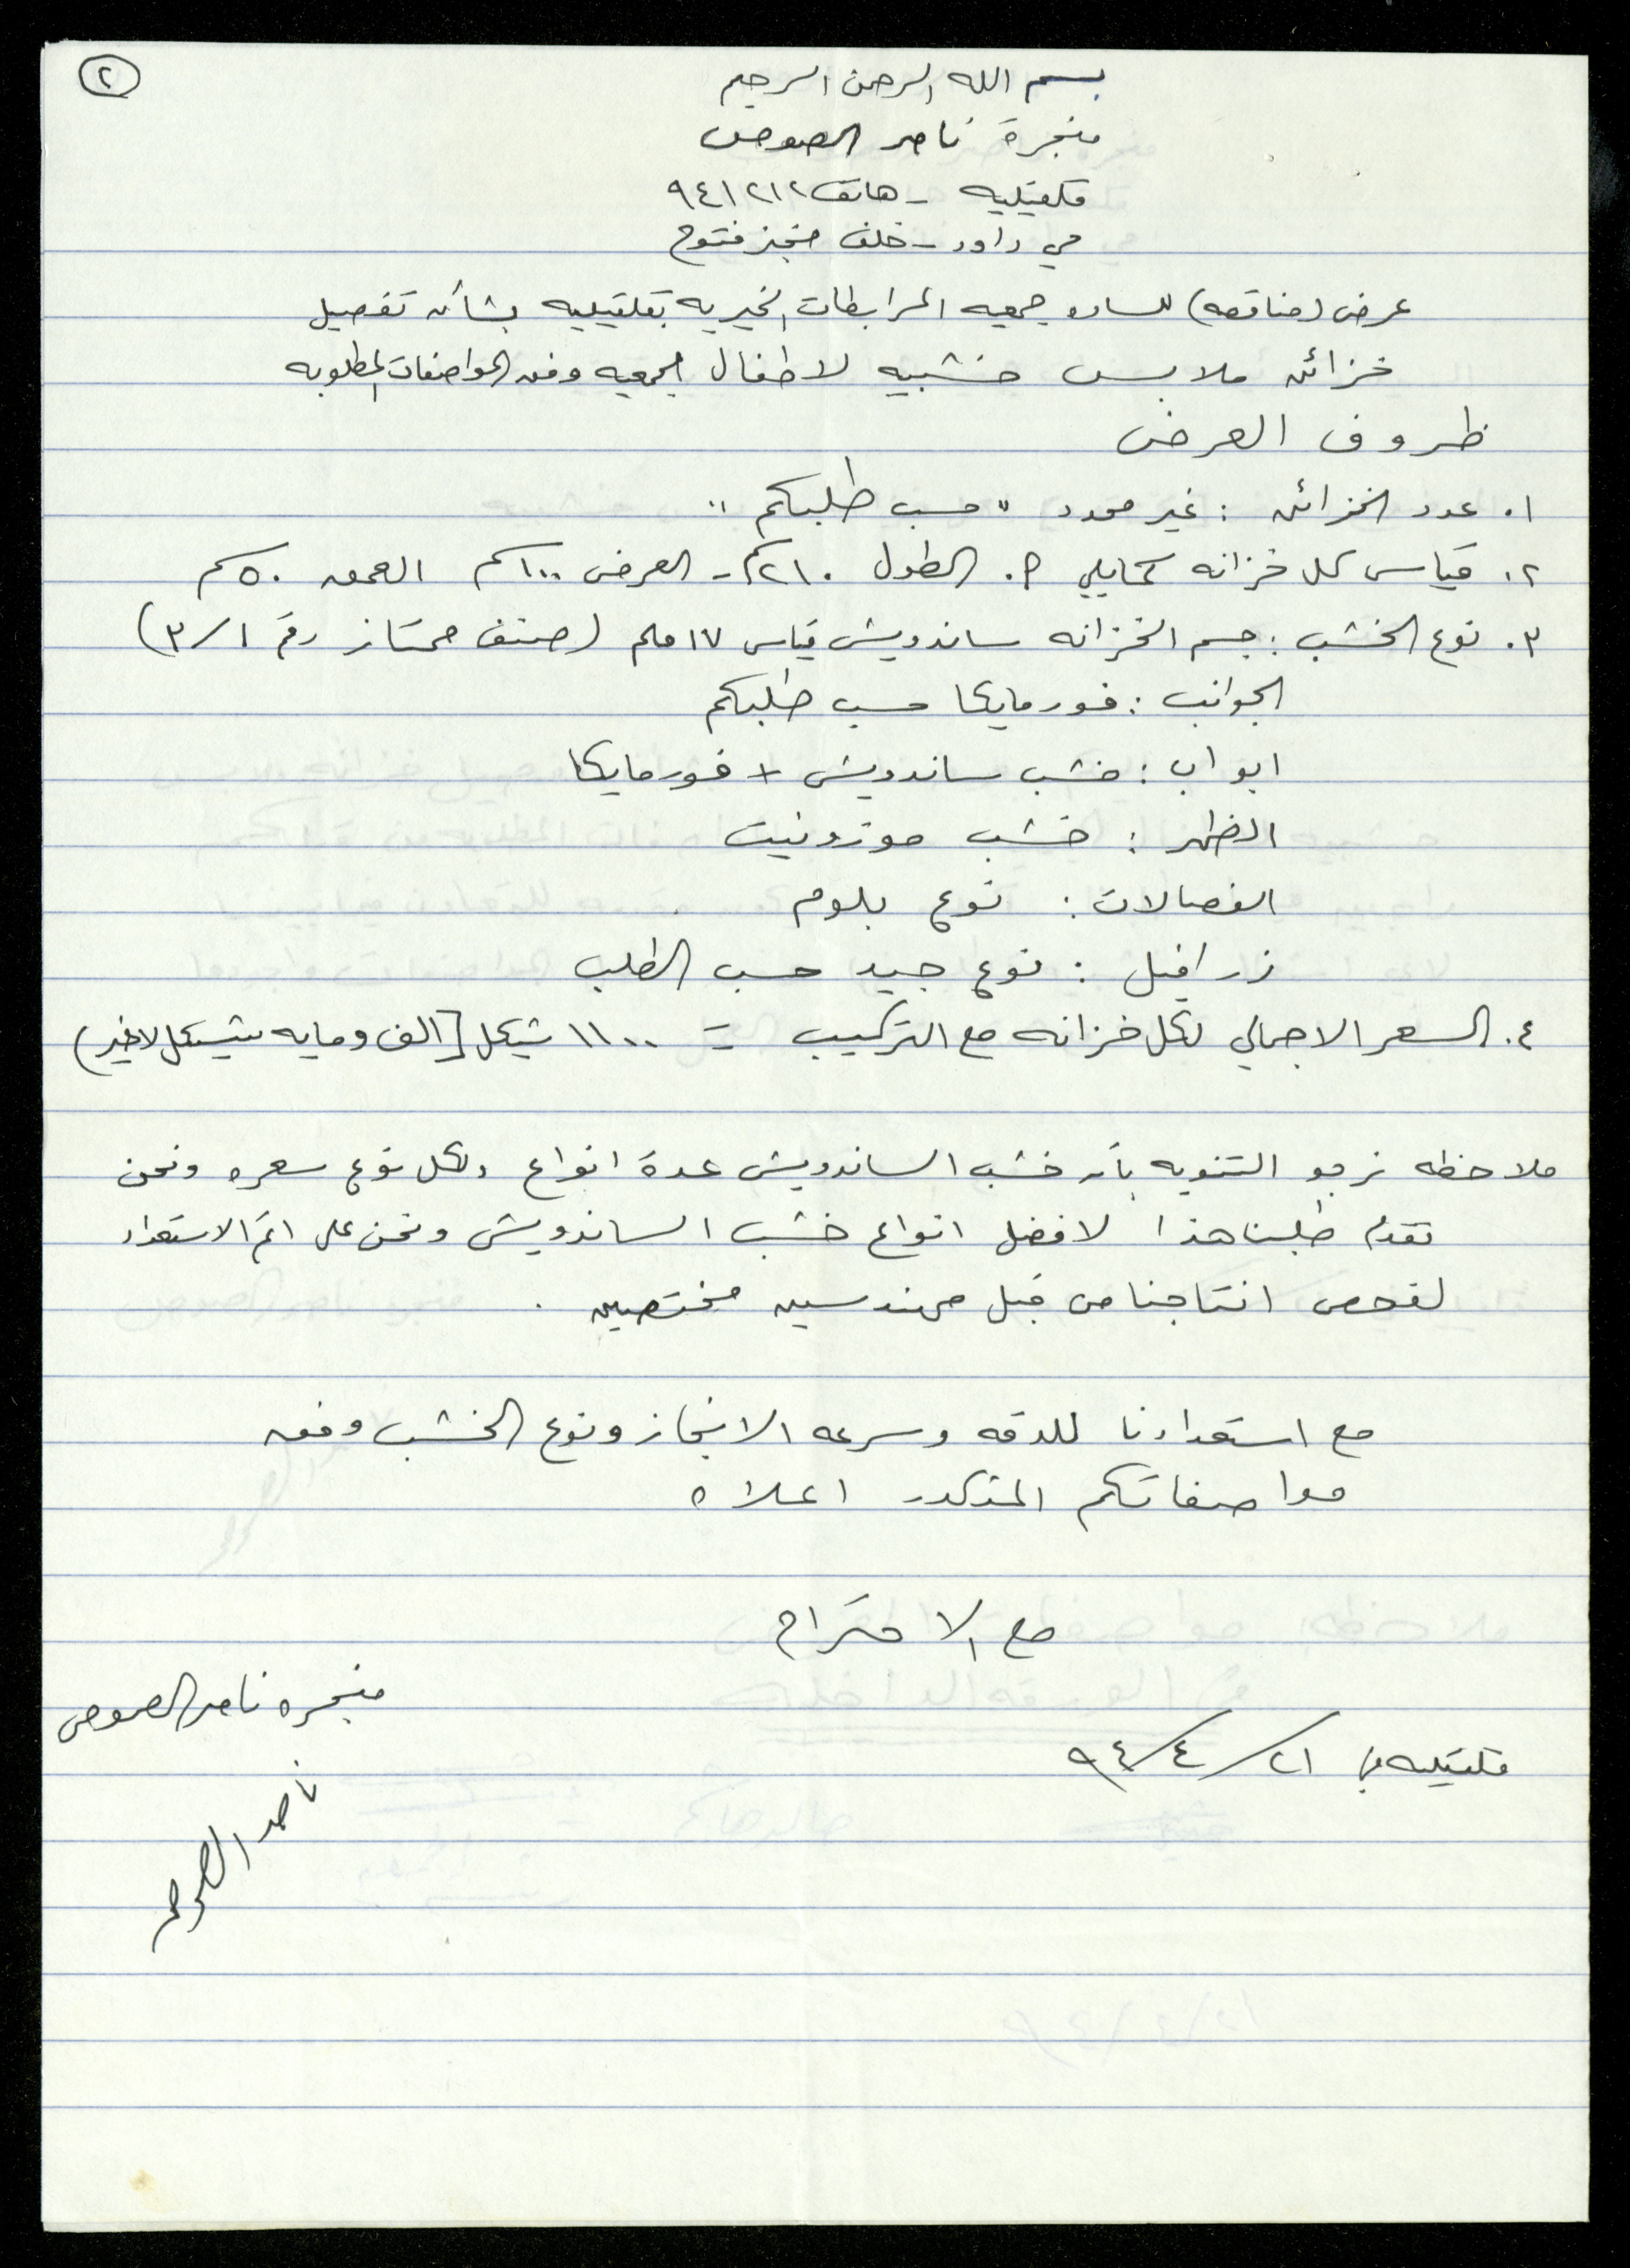 ٢
بسم الله الرحمن الرحيم
منجرة ناصر الصوص
قلقيليه - هاتف ٩٤١٢١٢
حي داود - خلف مخبز فتوح
عرض (مناقصه) للساده جمعيه المرابطات الخيريه بقلقيليه بشأن تفصيل
خزائن ملابس خشبيه لاطفال الجمعيه وفق المواصفات المطلوبه
ظروف العرض
١. عدد الخزائن : غير محدد " حسب طلبكم "
٢. قياس كل خزانه كمايلي . الطول ٢١٠ كم - العرض ١٠٠ كم العمق ٥٠ كم
٣. نوع الخشب : جسم الخزانه ساندويش قياس ١٧ ملم (صنف ممتاز رقم ٣/١)
الجوانب : فورمايكا حسب طلبكم
ابواب : خشب ساندويش + فورمايكا
الظهر : خشب موزونيت
الفصالات : نوع بلوم
زرافيل : نوع جيد حسب الطلب
٤. السعر الاجمالي لكل خزانه مع التركيب = ١١٠٠ شيكل [الف ومايه شيكل لاغير)
ملاحظه نرجو التنويه بأن خشب الساندويش عدة انواع ولكل نوع سعره ونحن
نقدم طلبنا هذا لافضل انواع خشب الساندويش ونحن على اتم الاستعداد
لفحص انتاجنا من قبل مهندسين مختصين .
مع استعدادنا للدقه وسرعه الانجاز ونوع الخشب وفق
مواصفاتكم المذكور اعلاه
مع الاحترام
منجره ناصر الصوص
قلقيليه في ٢١/٤/٩٤
ناصر الصوص